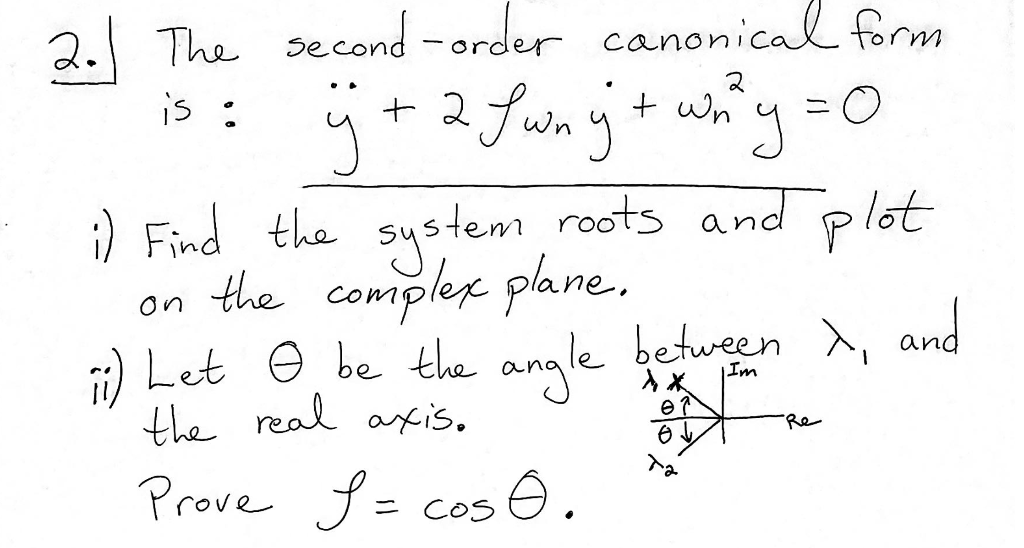 2. The second-order canonical form
is : ÿ + 2ζωn ẏ + ωn² y = 0
i) Find the system roots and plot
on the complex plane.
ii) Let θ be the angle between λ₁ and
the real axis.
Im
λ₁
θ
Re
θ
λ₂
Prove ζ = cos θ.